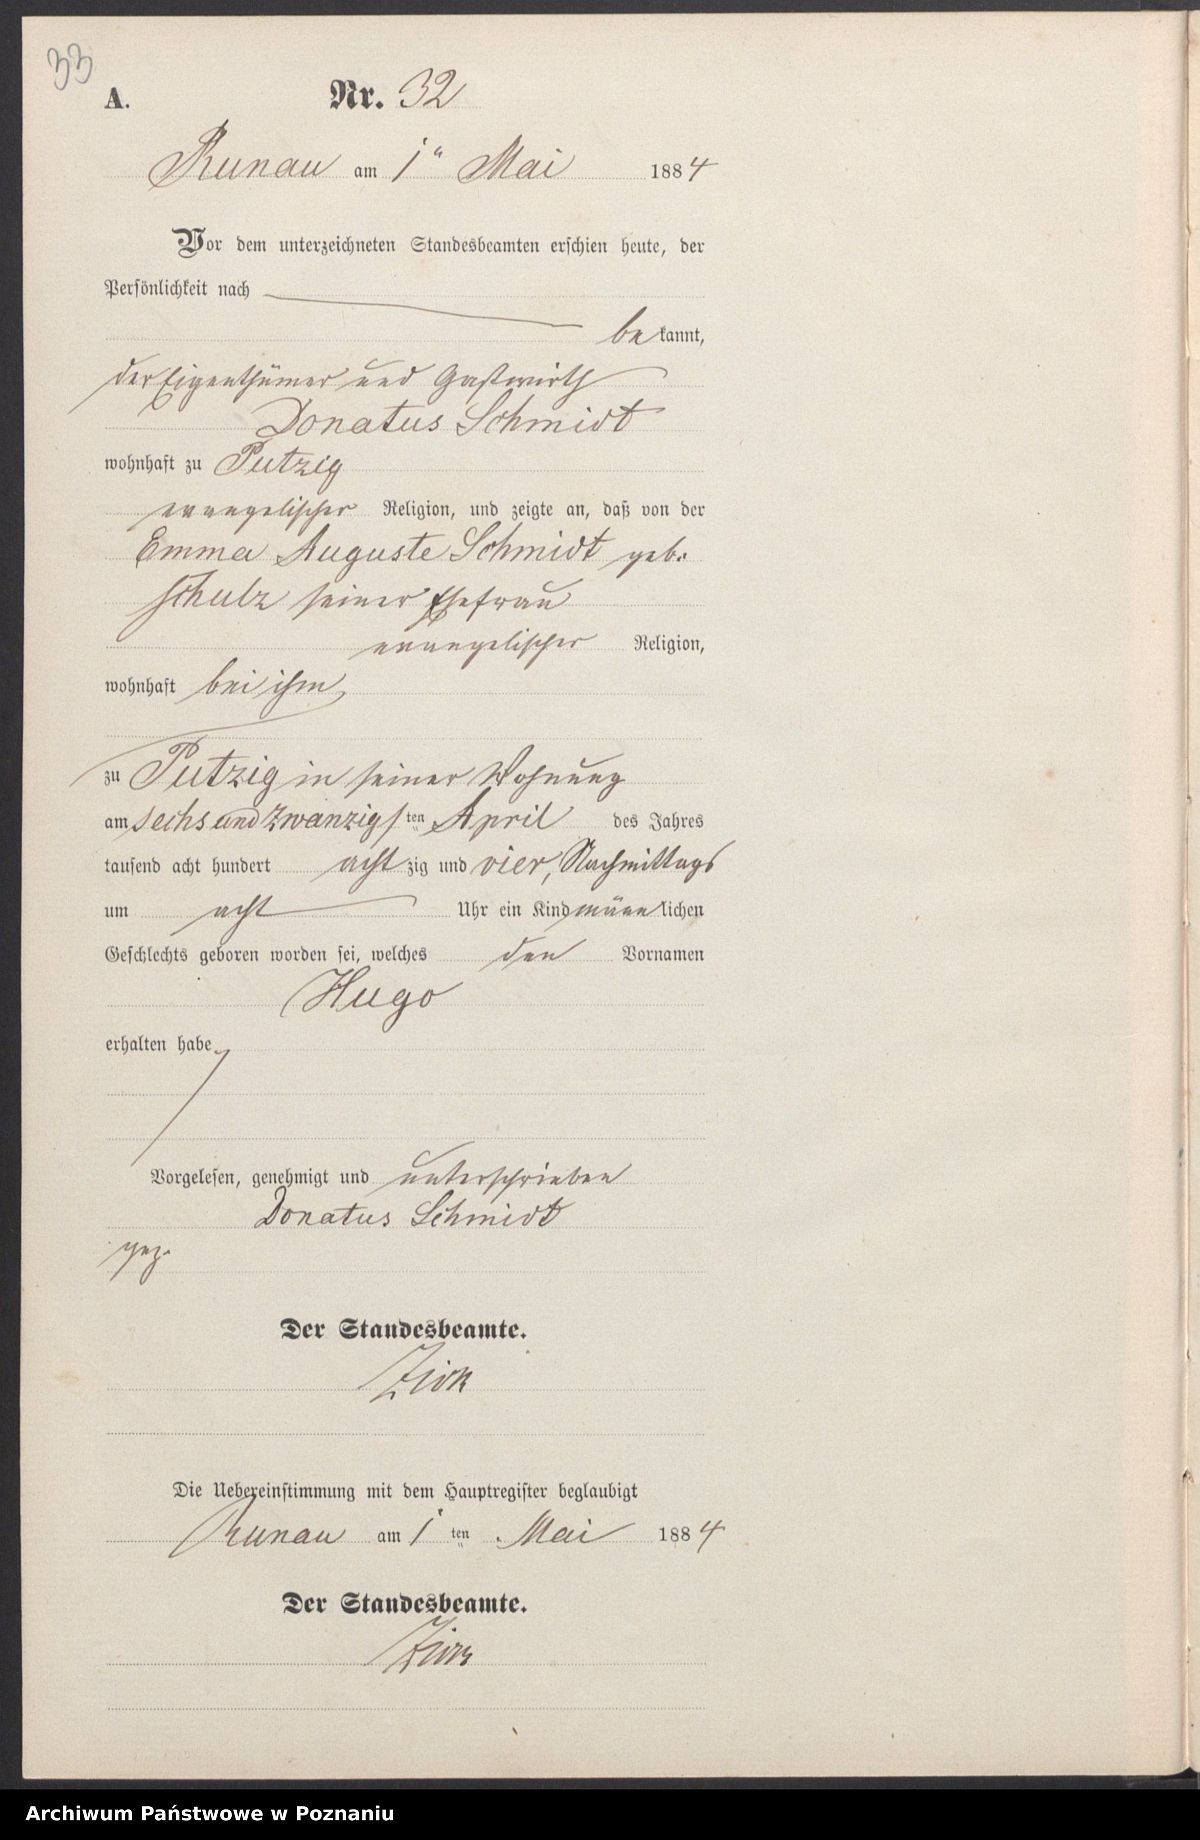 33
A. Nr. 32
Runau am 1ten Mai 1884
Vor dem unterzeichneten Standesbeamten erschien heute, der
Persönlichkeit nach
bekannt,
der Eigenthümer und Gastwirth
Donatus Schmidt
wohnhaft zu Putzig
evangelischer Religion, und zeigte an, daß von der
Emma Auguste Schmidt geb.
Schulz seiner Ehefrau
evangelischer Religion,
wohnhaft bei ihm,
zu Putzig in seiner Wohnung
am sechs und zwanzigsten April des Jahres
tausend acht hundert achtzig und vier, Nachmittags
um acht Uhr ein Kind männlichen
Geschlechts geboren worden sei, welches den Vornamen
Hugo
erhalten habe
Vorgelesen, genehmigt und unterschrieben
Donatus Schmidt
gez.
Der Standesbeamte.
Die Uebereinstimmung mit dem Hauptregister beglaubigt
Runau am 1ten Mai 1884
Der Standesbeamte.
Archiwum Państwowe w Poznaniu